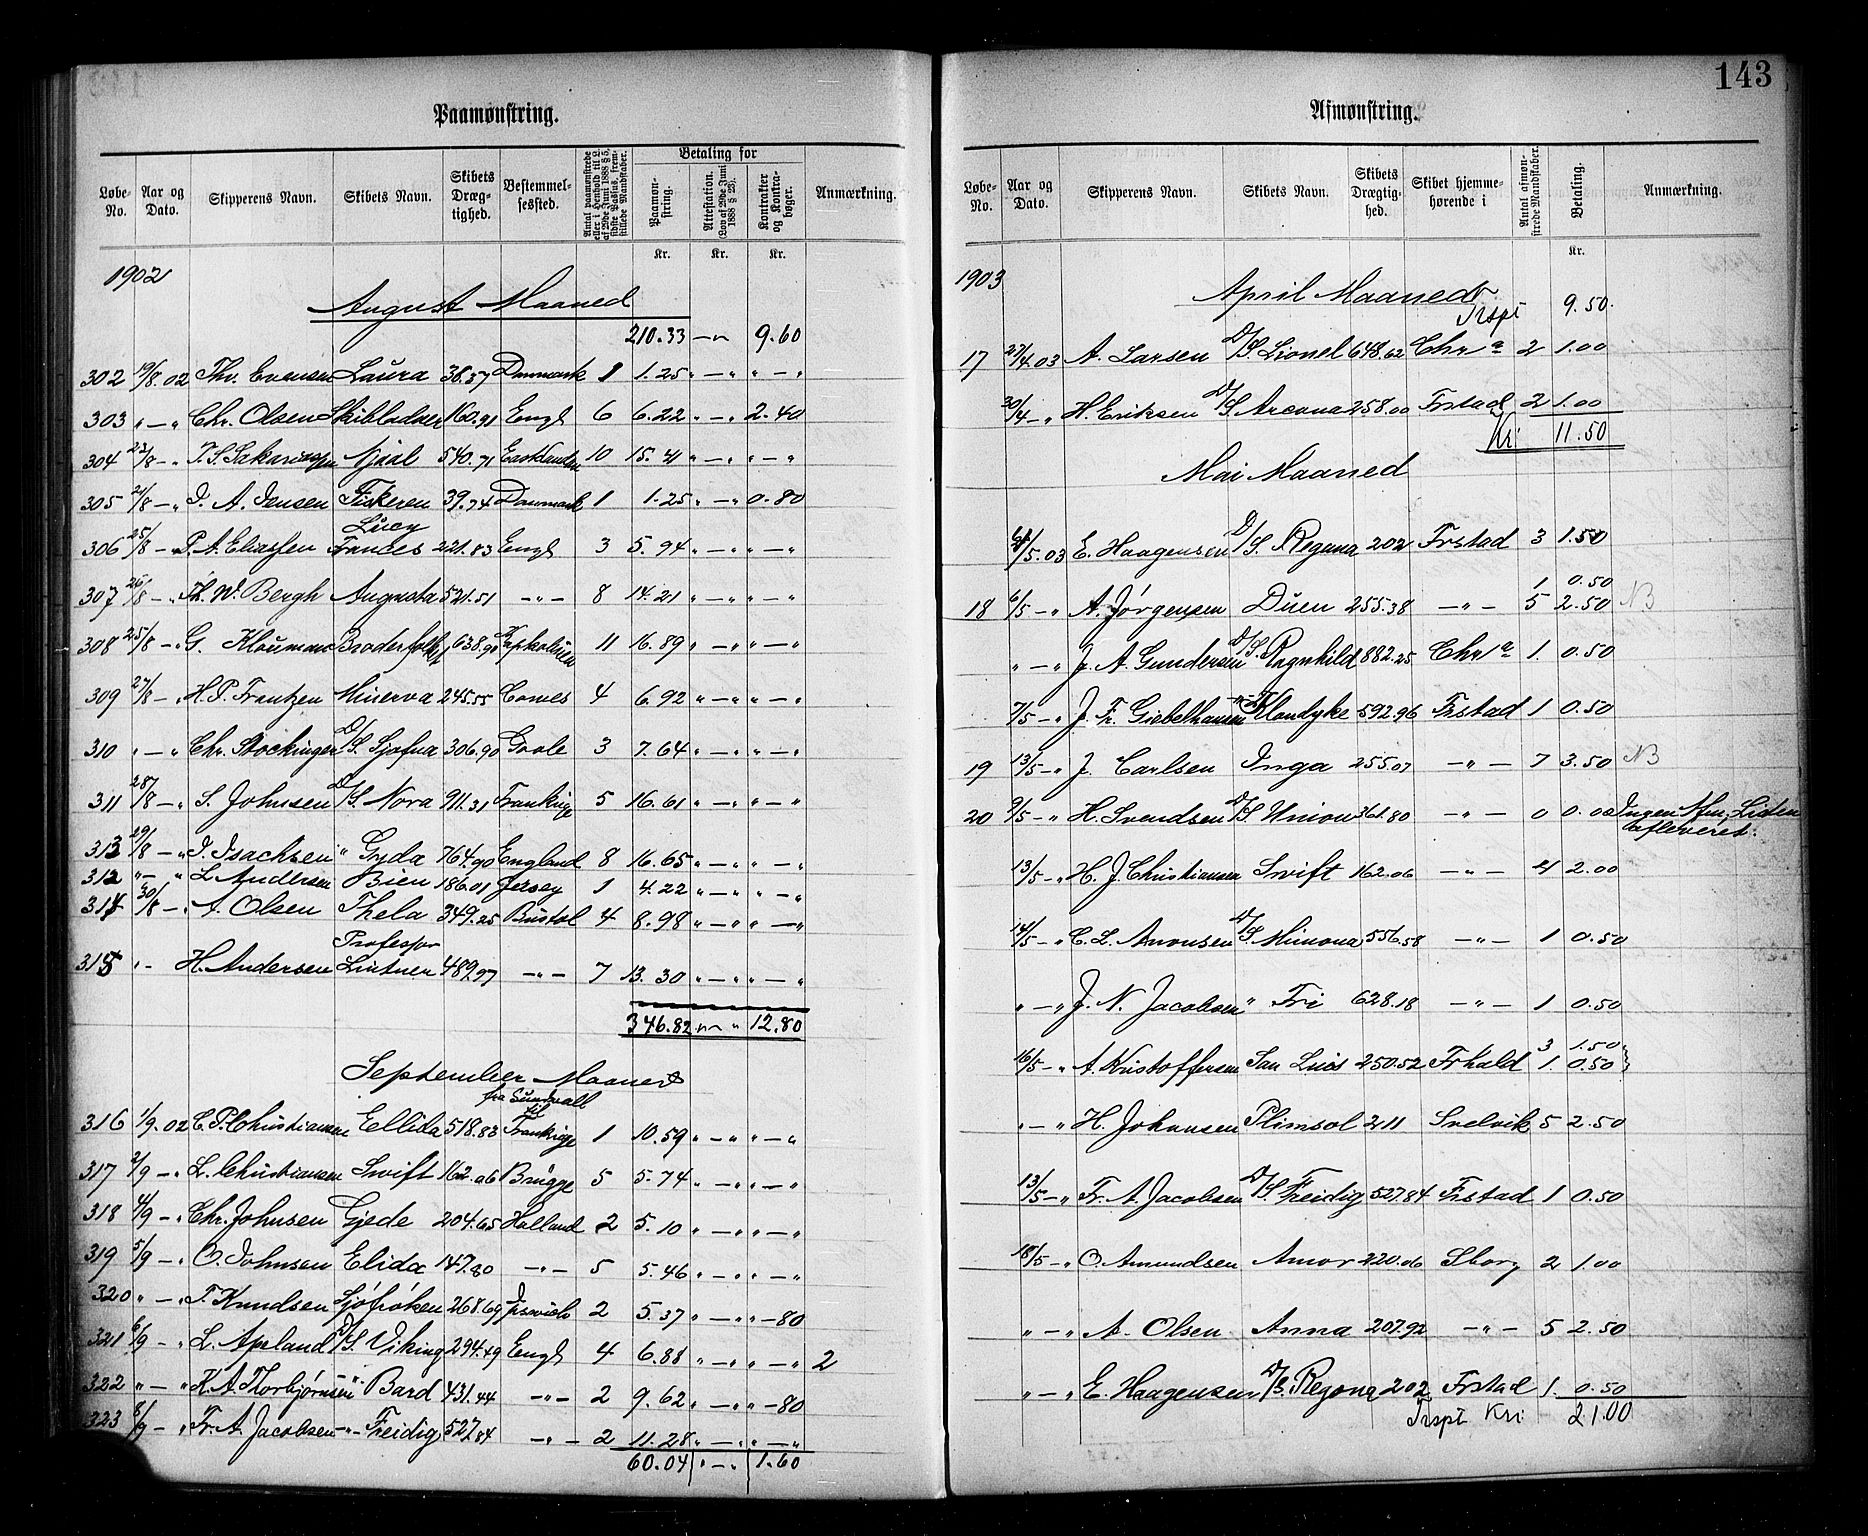 143
Paamønstring.
Løbe-No. Aar og Dato. Skipperens Navn. Skibets Navn. Skibets Dræg-tighed. Bestemmel-sessted. Antal paamønstrede eller i Henhold til L. af 29de Juni 1888 § 5, sidste Passus, frem-stillede Mandskaber. Betaling for Paamøn-string. Attestation. (Lov af 29de Juni 1888 § 23). Kontrakter og Kontra-bøger. Anmærkning.
Kr. Kr. Kr.
1902
August Maaned
210.33 — 9.60
302 19/8. 02 Thv. Evensen Laura 38.37 Danmark 1 1.25 " — " " — "
303 " — " Chr. Olsen Skibladner 160.91 Engl 6 6.22 " — " 2.40
304 23/8 — " Njaal 540.71 East London 10 15.41 " — " " — "
305 21/8 — " J. A. Jensen Fiskeren 39.74 Danmark 1 1.25 " — " 0.80
306 25/8 — " P. A. Eliassen Lucy Frances 221.83 Engl 3 5.94 " — " " — "
307 26/8 — " Th. W. Bergh Augusta 521.51 — " — 8 14.21 " — " " — "
308 25/8 — " G. Kloumann Broderfolket 638.90 Kapkolonien 11 16.89 " — " " — "
309 27/8 — " H. P. Frantzen Minerva 245.55 Cowes 4 6.92 " — " " — "
310 " — " Chr. Stockinger D/S. Sjofna 306.90 Goole 3 7.64 " — " " — "
311 28/8 — " S. Johnsen D/S. Nora 911.31 Frankrige 5 16.61 " — " " — "
313 29/8 — " J. Isachsen " Gyda 764.90 England 8 16.65 " — " " — "
312 " — " L. Andersen Bien 186.01 Jersey 1 4.22 " — " " — "
314 30/8 — " A. Olsen Thela 349.25 Bristol 4 8.98 " — " " — "
315 " - H. Andersen Professor Lintner 489.97 — " — 7 13.30 " — " " — "
346.82 " — " 12.80
September Maaned
316 1/9. 02 C. P. Christiansen Ellida 518.83 fra Sundsvall til Frankrige 1 10.59 " — " " — "
317 2/9 — " L. Christiansen Swift 162.06 Brügge 5 5.74 " — " " — "
318 4/9 — " Chr. Johnsen Gjede 204.65 Holland 2 5.10 " — " " — "
319 5/9 — " O. Johnsen Elida 147.80 — " — 5 5.46 " — " " — "
320 " — " T. Knudsen Sjöfröken 268.69 Ipswich 2 5.37 " — " " — 80
321 6/9 — " L. Apeland D/S. Viking 294.49 Engl 4 6.88 " — " " — " 2
322 " — " K. A. Thorbjørnsen " Bard 431.44 — " — 2 9.62 " — " " — 80
323 8/9 — " Fr. A. Jacobsen — " — Freidig 527.84 — " — 2 11.28 " — " " — "
60.04 " — " 1.60
Afmønstring.
Løbe-No. Aar og Dato. Skipperens Navn. Skibets Navn. Skibets Drægtig-hed. Skibet hjemme-hørende i Antal afmøn-strede Mandskaber. Betaling. Anmærkning.
Kr.
1903
April Maaned
Trspt 9.50
17 27/4. 03 A. Larsen D/S Lionel 648.62 Chra 2 1.00
30/4 — " H. Eriksen D/S Arcona 258.00 Frstad 2 1.00
Kr: 11.50
Mai Maaned
4/5. 03 E. Haagensen D/S. Regana 202 Frstad 3 1.50
1 0.50
18 6/5 — " A. Jørgensen Duen 255.38 — " — 5 2.50 NB
" — " J. A. Gundersen D/S. Ragnhild 882.25 Chra 1. 0.50
7/5 — " J. Fr. Giebelhausen — " — Klondyke 592.96 Frstad 1 0.50
19 13/5 — " J. Carlsen Inga 255.07 — " — 7 3.50 NB
20 9/5 — " H. Svendsen D/S Union 361.80 — " — 0 0.00 Ingen Afm. Listen afleveret.
13/5 — " H. J. Christiansen Swift 162.06 — " — 4 2.00
14/5 — " C. L. Aronsen D/S. Mimona 556.58 — " — 1 0.50
" — " J. N. Jacobsen " Fri 628.18 — " — 1 0.50
3 1.50
16/5 — " A. Kristoffersen San Luis 250.52 Frhald 1 0.50
" — " H. Johansen Plimsol 211 Svelvik 5 2.50
13/5 — " Fr. A. Jacobsen D/S. Freidig 527.84 Frstad 1 0.50
18/5 — " O. Amundsen Amor 220.06 Sborg 2 1.00
" — " A. Olsen Anna 207.92 — " — 5 2.50
" — " E. Haagensen D/S. Regona 202 Frstad 1. 0.50
Trspt Kr: 21.00